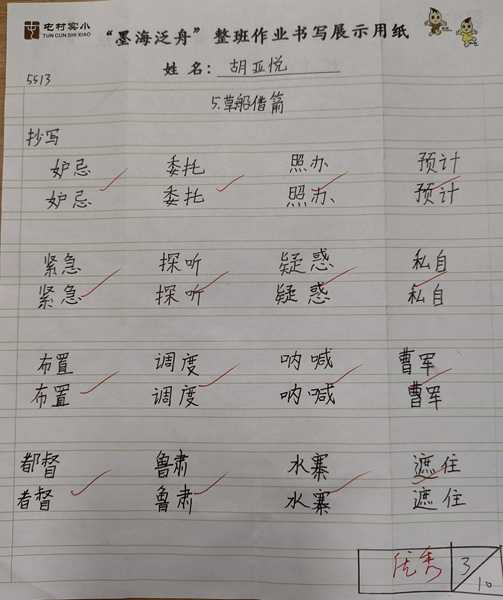 屯村实小
TUN CUN SHI XIAO
“墨海泛舟”整班作业书写展示用纸
姓名：胡亚悦
5513
5.草船借箭
抄写
妒忌 委托 照办 预计
妒忌 委托 照办 预计
紧急 探听 疑惑 私自
紧急 探听 疑惑 私自
布置 调度 呐喊 曹军
布置 调度 呐喊 曹军
都督 鲁肃 水寨 遮住
都督 鲁肃 水寨 遮住
优秀 3/10